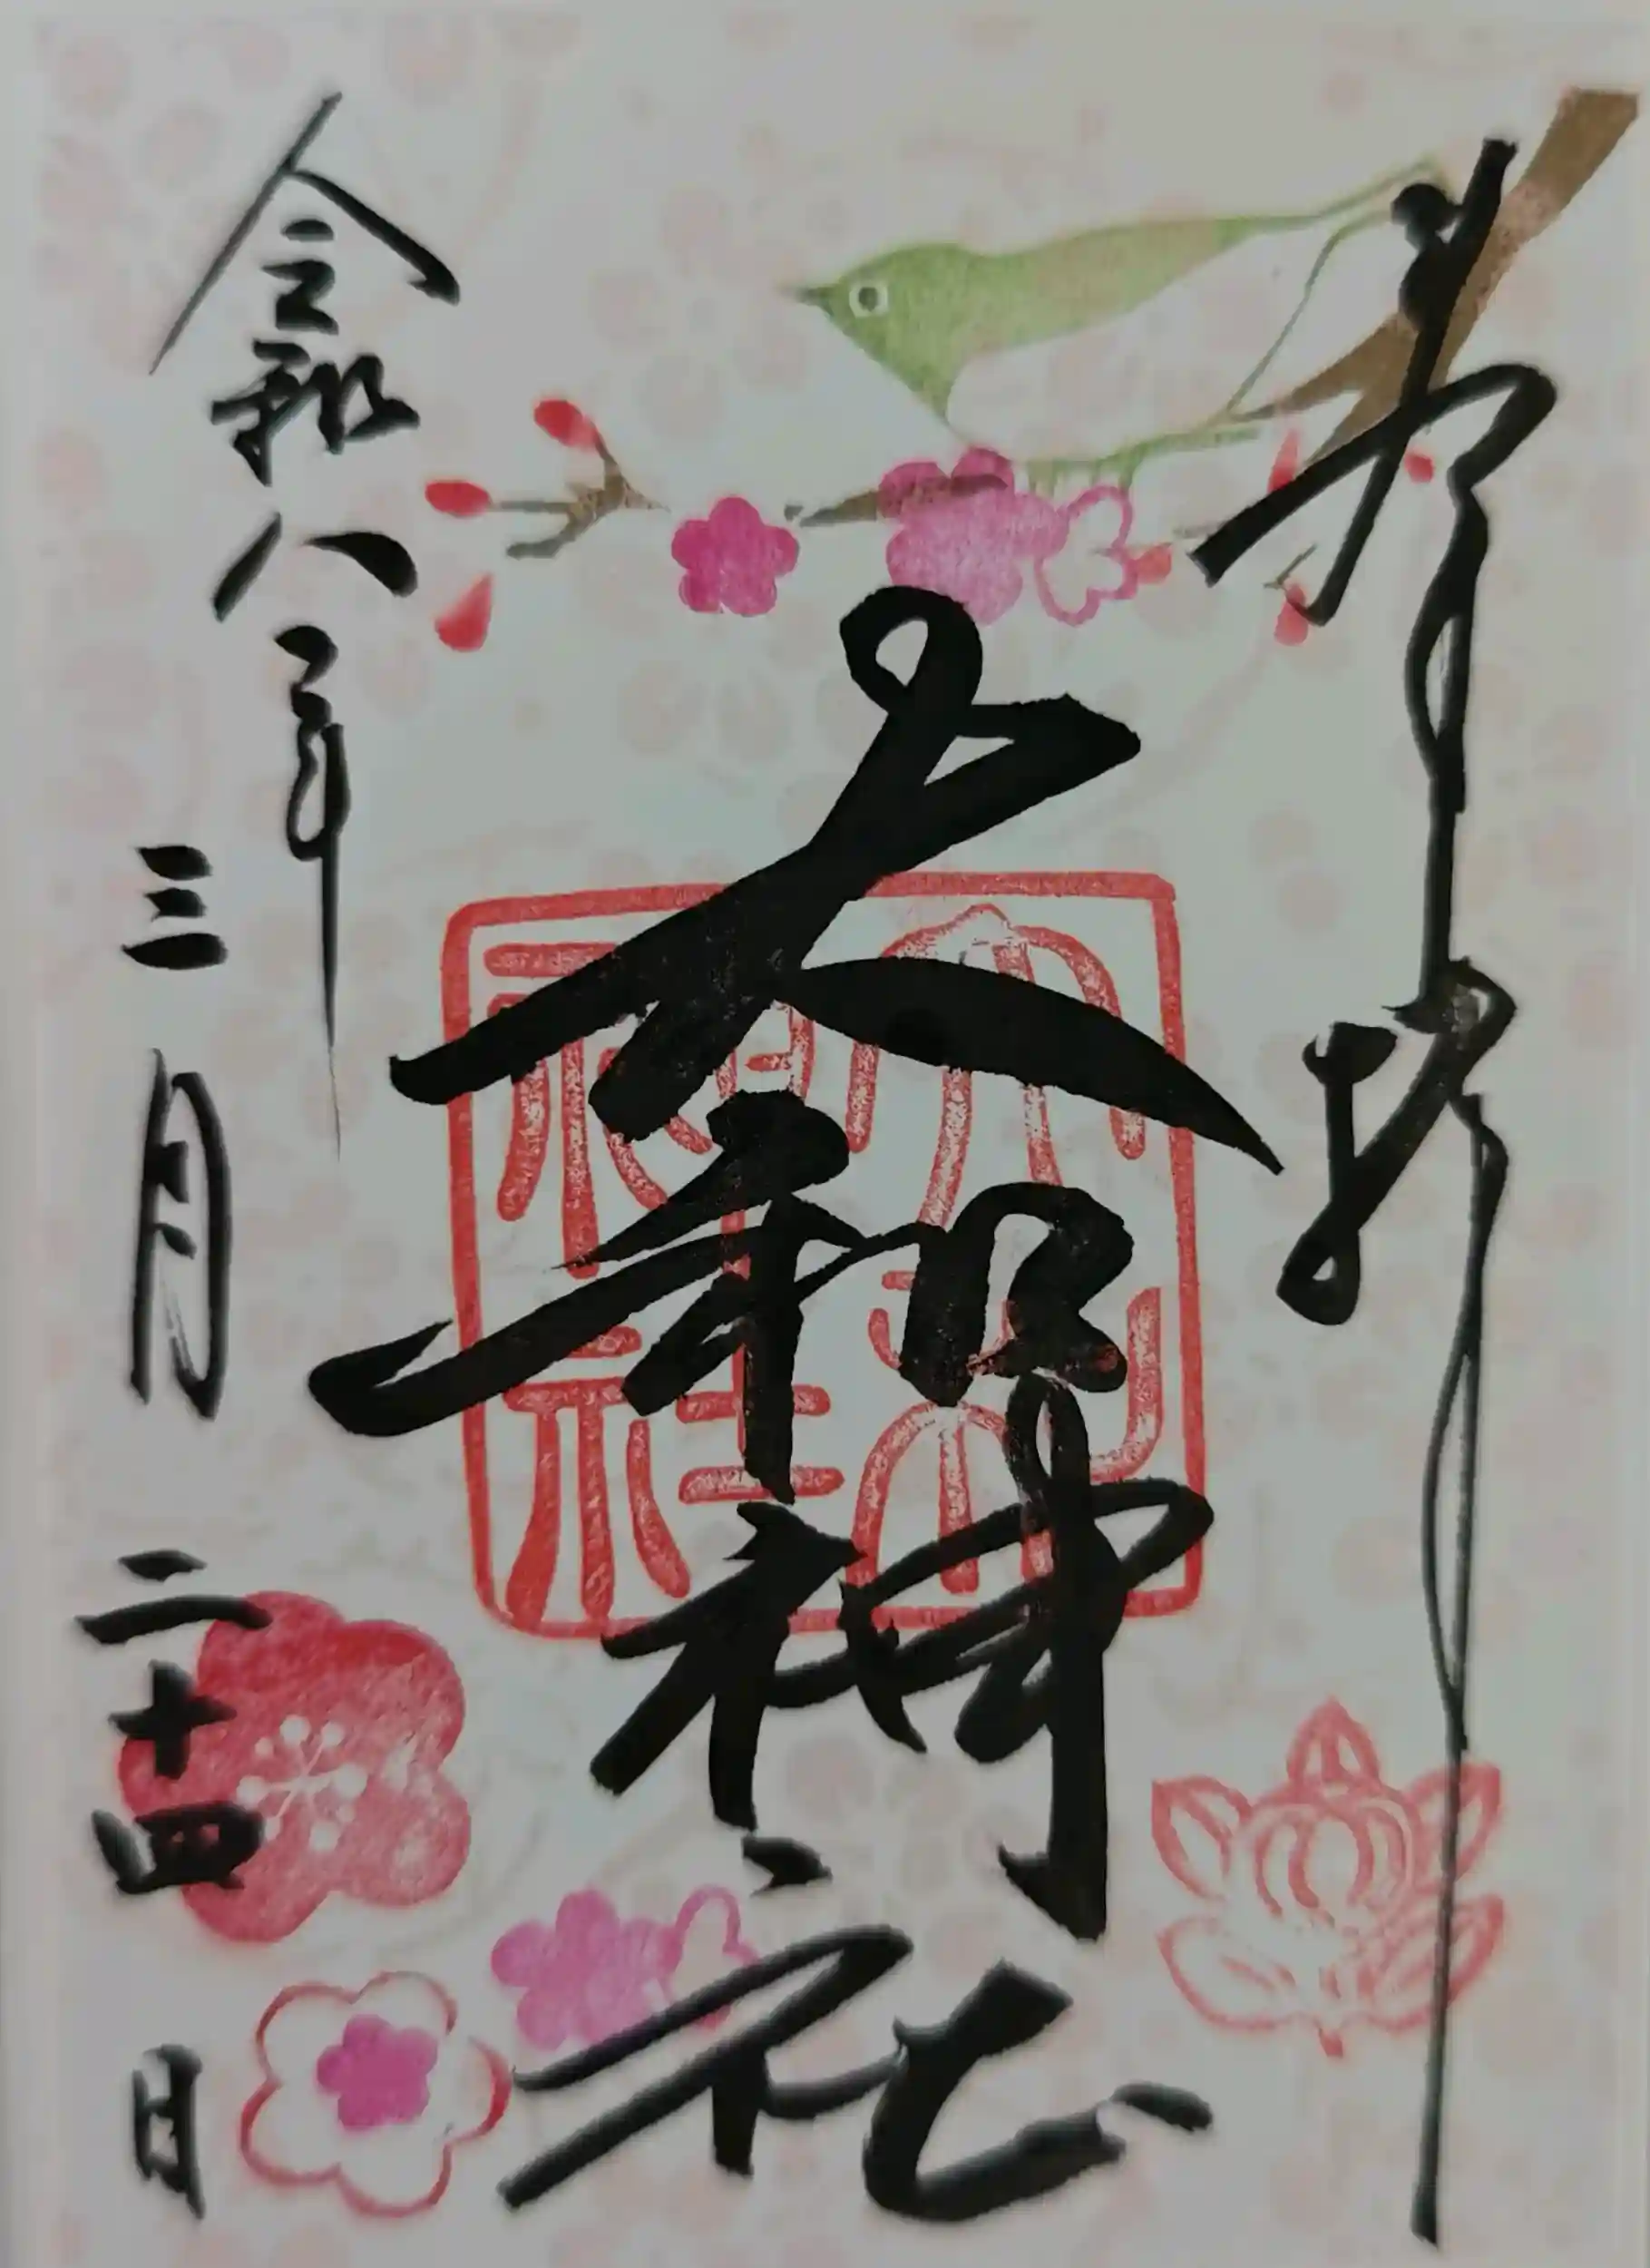 奉拝
大和神社
大和
神社
令和八年
三月二十四日